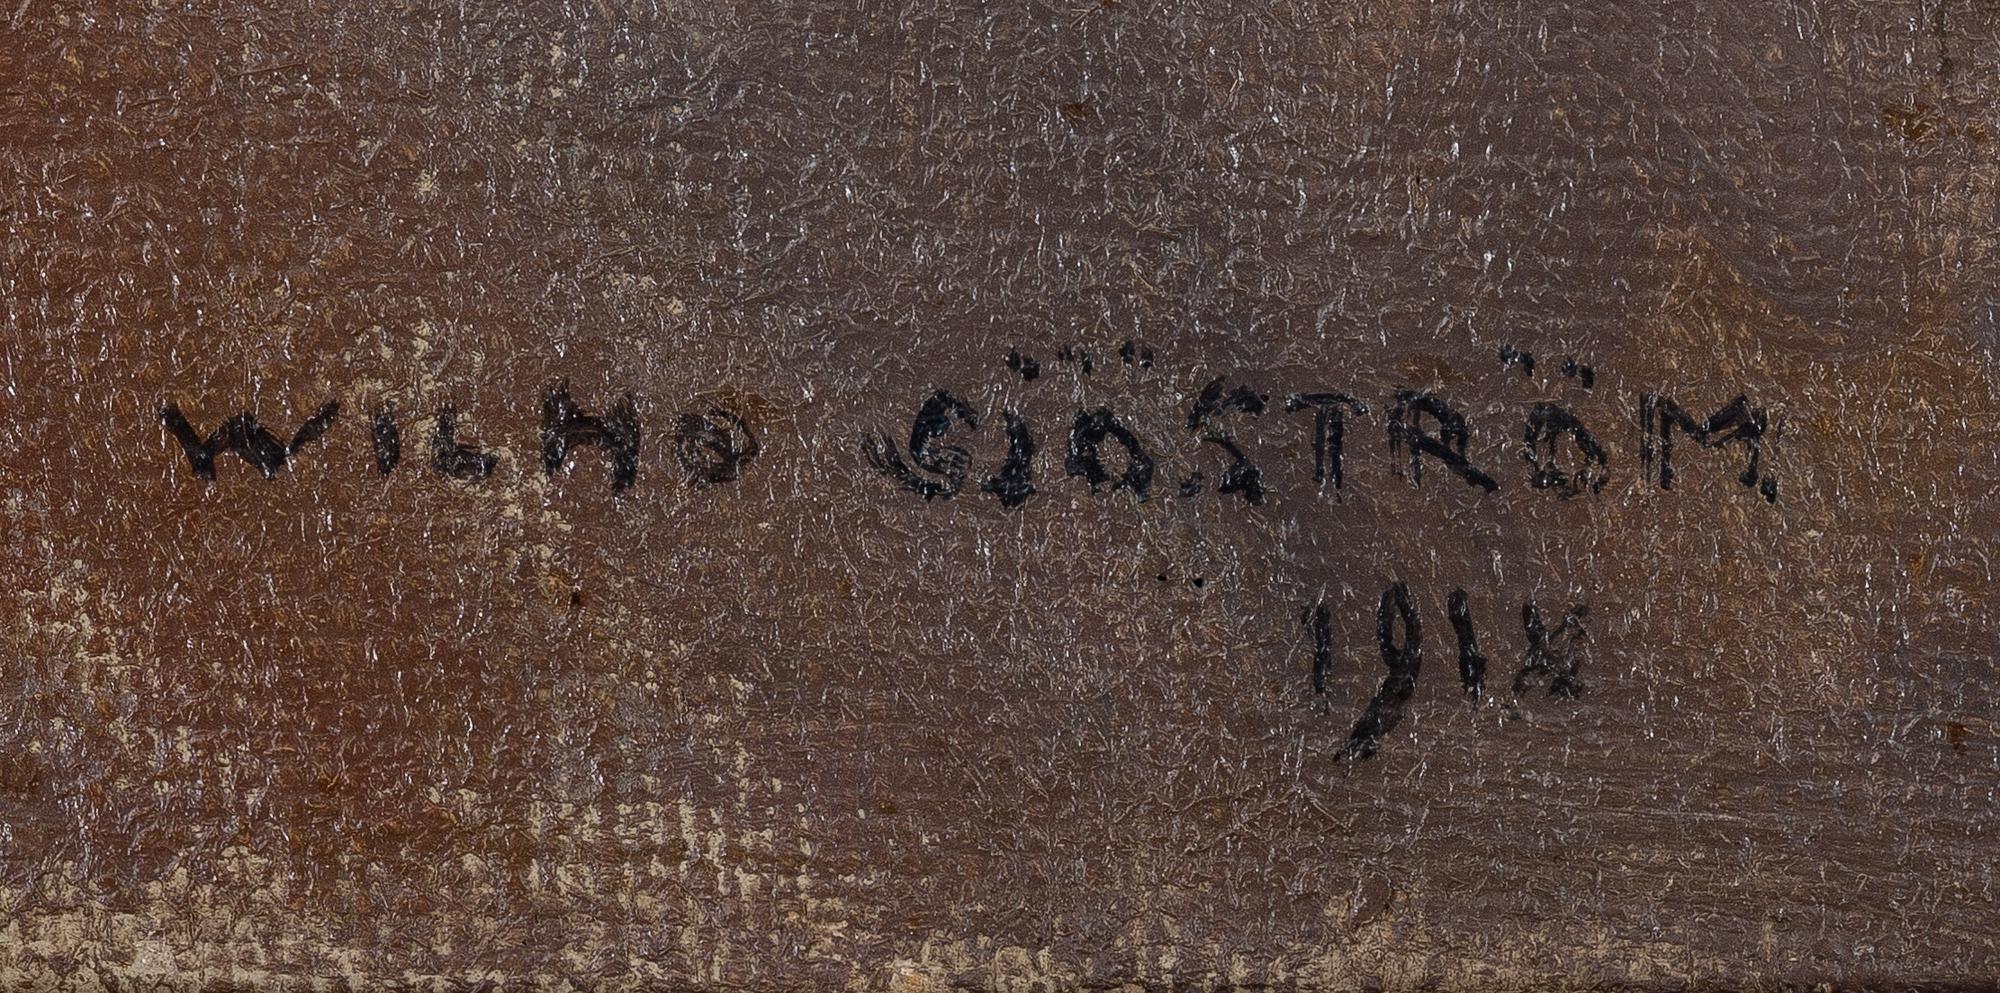 WILHO SJÖSTRÖM.
1918